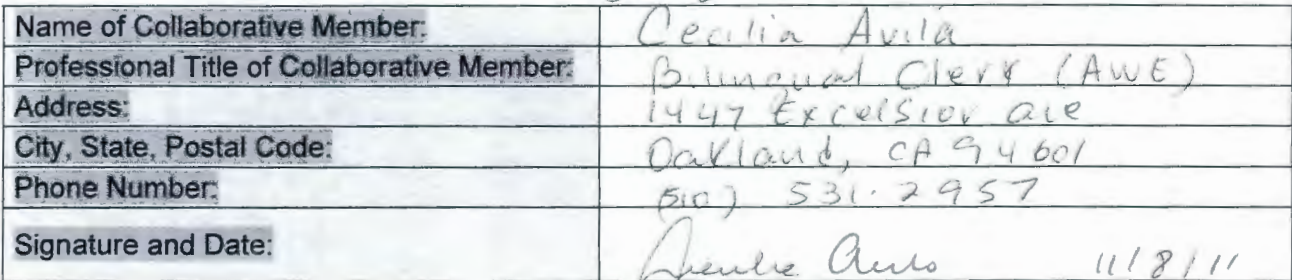 Name of Collaborative Member: Cecilia Avila
Professional Title of Collaborative Member: Bilingual Clerk (AWE)
Address: 1447 Excelsior ave
City, State, Postal Code: Oakland, CA 94601
Phone Number: (510) 531-2957
Signature and Date: 11/8/11